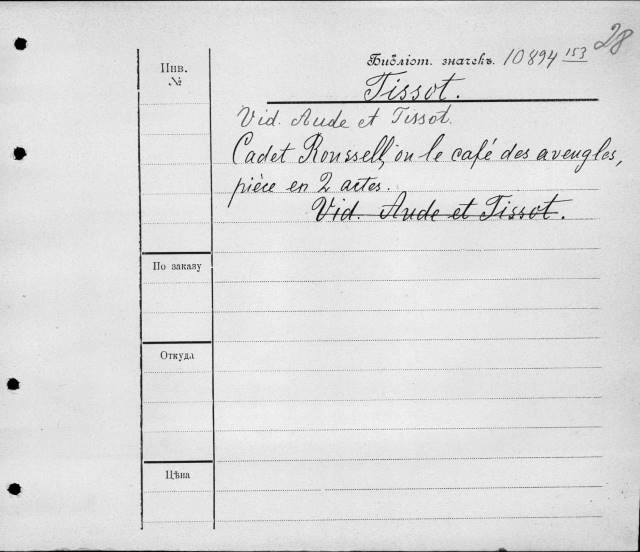 28
Инв.
№
Библіот. значекъ. 10894 153
Tissot.
Vid. Aude et Tissot.
Cadet Roussell, ou le café des aveugles,
pièce en 2 actes.
Vid. Aude et Tissot.
По заказу
Откуда
Цѣна